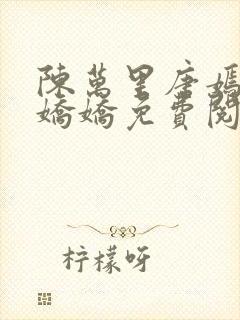 陳萬里唐嫣
嬌嬌免費閱
柠檬呀